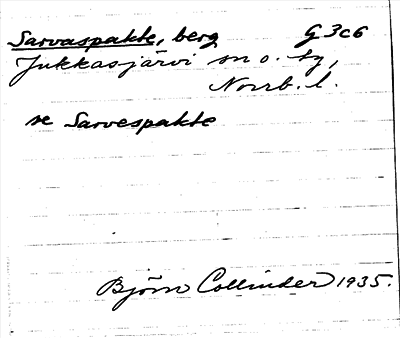 Sarvaspakte, berg G 3c6
Jukkasjärvi sn o. tg,
Norrb. l.
se Sarvespakte
Björn Collinder 1935.